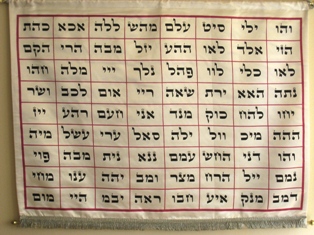 והו ילי סיט עלם מהש ללה אכא כהת
הזי אלד לאו ההע יזל מבה הרי הקם
לאו כלי לוו פהל נלך ייי מלה חהו
נתה האא ירת שאה ריי אום לכב ושר
יחו להח כוק מנד אני חעם רהע ייז
ההה מיכ וול ילה סאל ערי עשל מיה
והו דני החש עמם ננא נית מבה פוי
נמם ייל הרח מצר ומב יהה ענו מחי
דמב מנק איע חבו ראה יבמ היי מום